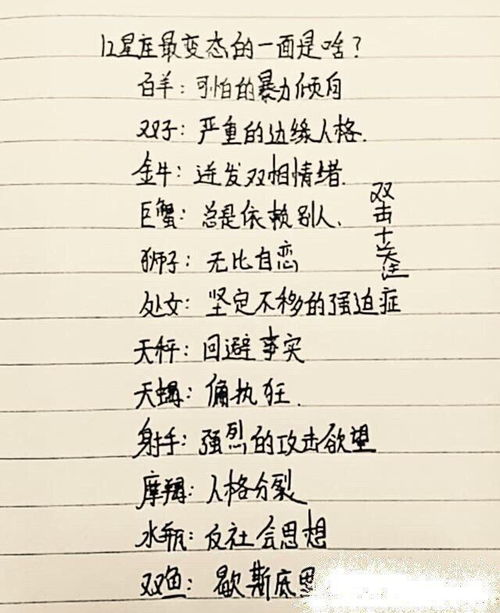 12星座最变态的一面是啥？
白羊：可怕的暴力倾向
双子：严重的边缘人格.
金牛：迸发双相情绪.
巨蟹：总是依赖别人.
双击+关注
狮子：无比自恋
处女：坚定不移的强迫症
天秤：回避事实
天蝎：偏执狂.
射手：强烈的攻击欲望
摩羯：人格分裂
水瓶：反社会思想
双鱼：歇斯底里